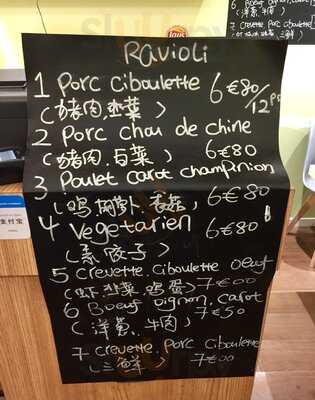 Ravioli
1 Porc Ciboulette 6€80/12Ps
(猪肉,韭菜)
2 Porc chou de chine
(猪肉.白菜) 6€80
3 Poulet carot champinion
(鸡,胡萝卜,香菇) 6€80
4 Vegetarien 6€80
(素饺子)
5 Crevette.ciboulette oeuf
(虾.韭菜.鸡蛋) 7€00
6 Boeuf oignon.carot
(洋葱.牛肉) 7€50
7 crevette.porc ciboulette
(三鲜) 7€00
支付宝
Lay's